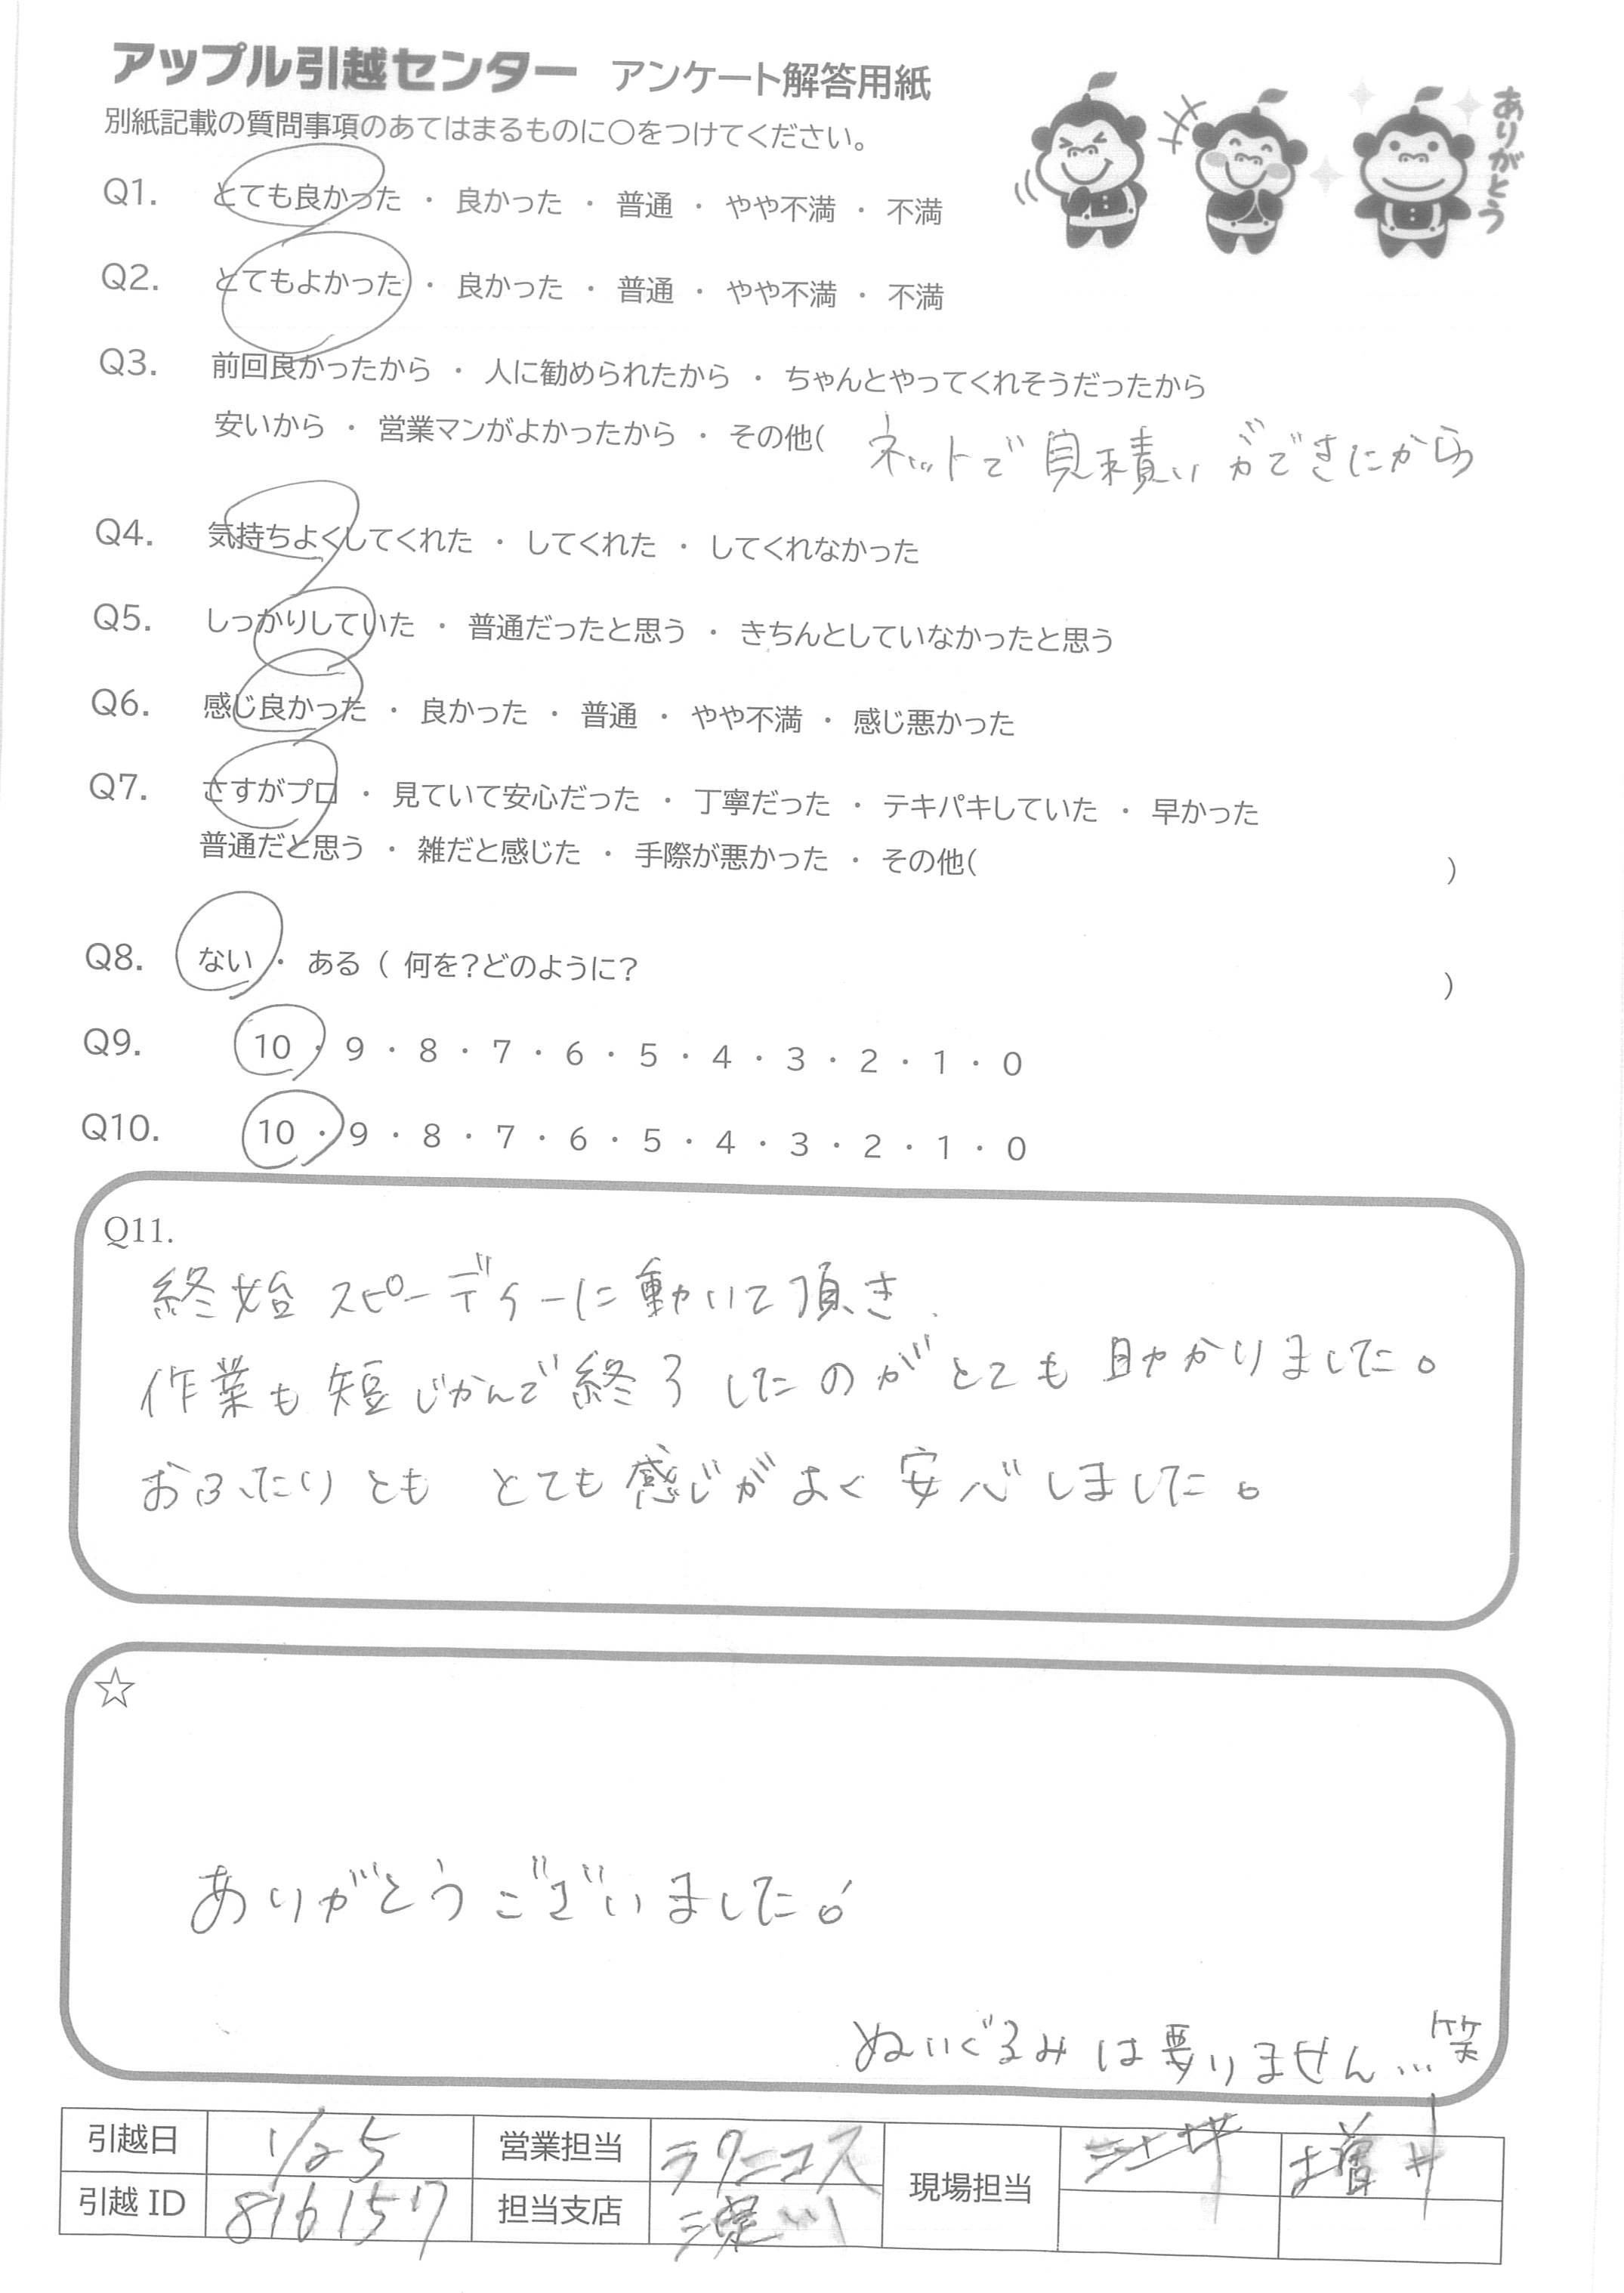 アップル引越センター アンケート解答用紙
別紙記載の質問事項のあてはまるものに○をつけてください。
ありがとう
Q1. とても良かった ・ 良かった ・ 普通 ・ やや不満 ・ 不満
Q2. とてもよかった ・ 良かった ・ 普通 ・ やや不満 ・ 不満
Q3. 前回良かったから ・ 人に勧められたから ・ ちゃんとやってくれそうだったから
安いから ・ 営業マンがよかったから ・ その他( ネットで見積いができたから
Q4. 気持ちよくしてくれた ・ してくれた ・ してくれなかった
Q5. しっかりしていた ・ 普通だったと思う ・ きちんとしていなかったと思う
Q6. 感じ良かった ・ 良かった ・ 普通 ・ やや不満 ・ 感じ悪かった
Q7. さすがプロ ・ 見ていて安心だった ・ 丁寧だった ・ テキパキしていた ・ 早かった
普通だと思う ・ 雑だと感じた ・ 手際が悪かった ・ その他( )
Q8. ない ・ ある ( 何を?どのように? )
Q9. 10 ・ 9 ・ 8 ・ 7 ・ 6 ・ 5 ・ 4 ・ 3 ・ 2 ・ 1 ・ 0
Q10. 10 ・ 9 ・ 8 ・ 7 ・ 6 ・ 5 ・ 4 ・ 3 ・ 2 ・ 1 ・ 0
Q11.
終始 スピーディーに動いて頂き、
作業も短じかんで終了したのがとても助かりました。
おふたりとも とても感じがよく安心しました。
☆
ありがとうございました!
ぬいぐるみは要りません... 笑
引越日 1/25 営業担当 ラクニコス 現場担当
引越 ID 816157 担当支店